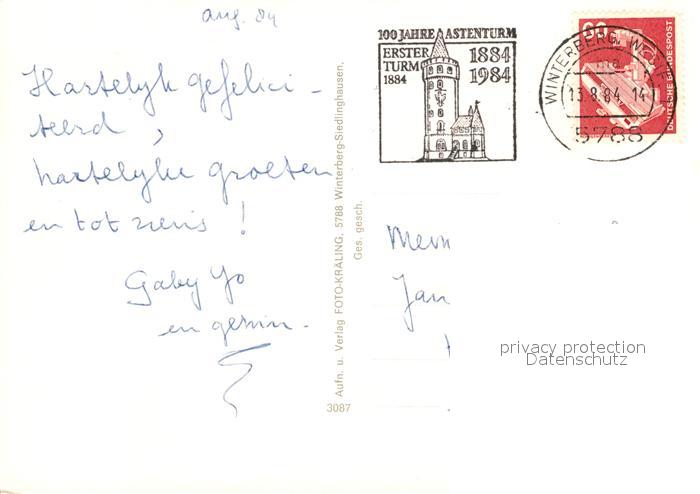 aug. 84
Hartelyk gefelici-
teerd,
hartelyke groeten
en tot ziens!
Gaby Yo
en gezin.
Aufn. u. Verlag FOTO-KRÄLING, 5788 Winterberg-Siedlinghausen.
Ges. gesch.
3087
100 JAHRE ASTENTURM
ERSTER 1884
TURM 1984
1884
WINTERBERG, W
ma
13.8.84.14
5788
60
DEUTSCHE BUNDESPOST
Mevr
Jan
privacy protection
Datenschutz